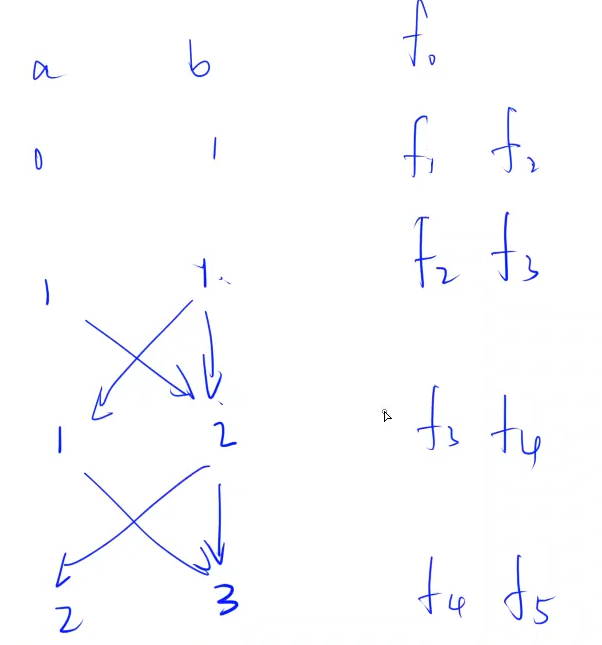 a b f₀
0 1 f₁ f₂
1 1 f₂ f₃
1 2 f₃ f₄
2 3 f₄ f₅